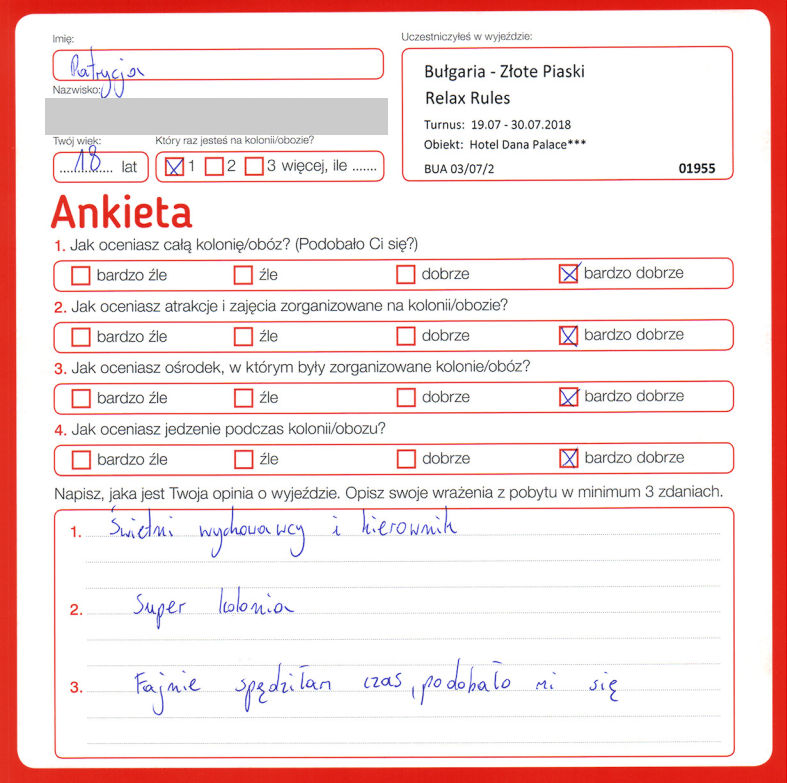 Imię:
Patrycja
Nazwisko:
Twój wiek:
18 lat
Który raz jesteś na kolonii/obozie?
1 2 3 więcej, ile .......
Uczestniczyłeś w wyjeździe:
Bułgaria - Złote Piaski
Relax Rules
Turnus: 19.07 - 30.07.2018
Obiekt: Hotel Dana Palace***
BUA 03/07/2 01955
Ankieta
1. Jak oceniasz całą kolonię/obóz? (Podobało Ci się?)
bardzo źle źle dobrze bardzo dobrze
2. Jak oceniasz atrakcje i zajęcia zorganizowane na kolonii/obozie?
bardzo źle źle dobrze bardzo dobrze
3. Jak oceniasz ośrodek, w którym były zorganizowane kolonie/obóz?
bardzo źle źle dobrze bardzo dobrze
4. Jak oceniasz jedzenie podczas kolonii/obozu?
bardzo źle źle dobrze bardzo dobrze
Napisz, jaka jest Twoja opinia o wyjeździe. Opisz swoje wrażenia z pobytu w minimum 3 zdaniach.
1. Świetni wychowawcy i kierownik
2. Super kolonia
3. Fajnie spędziłam czas, podobało mi się